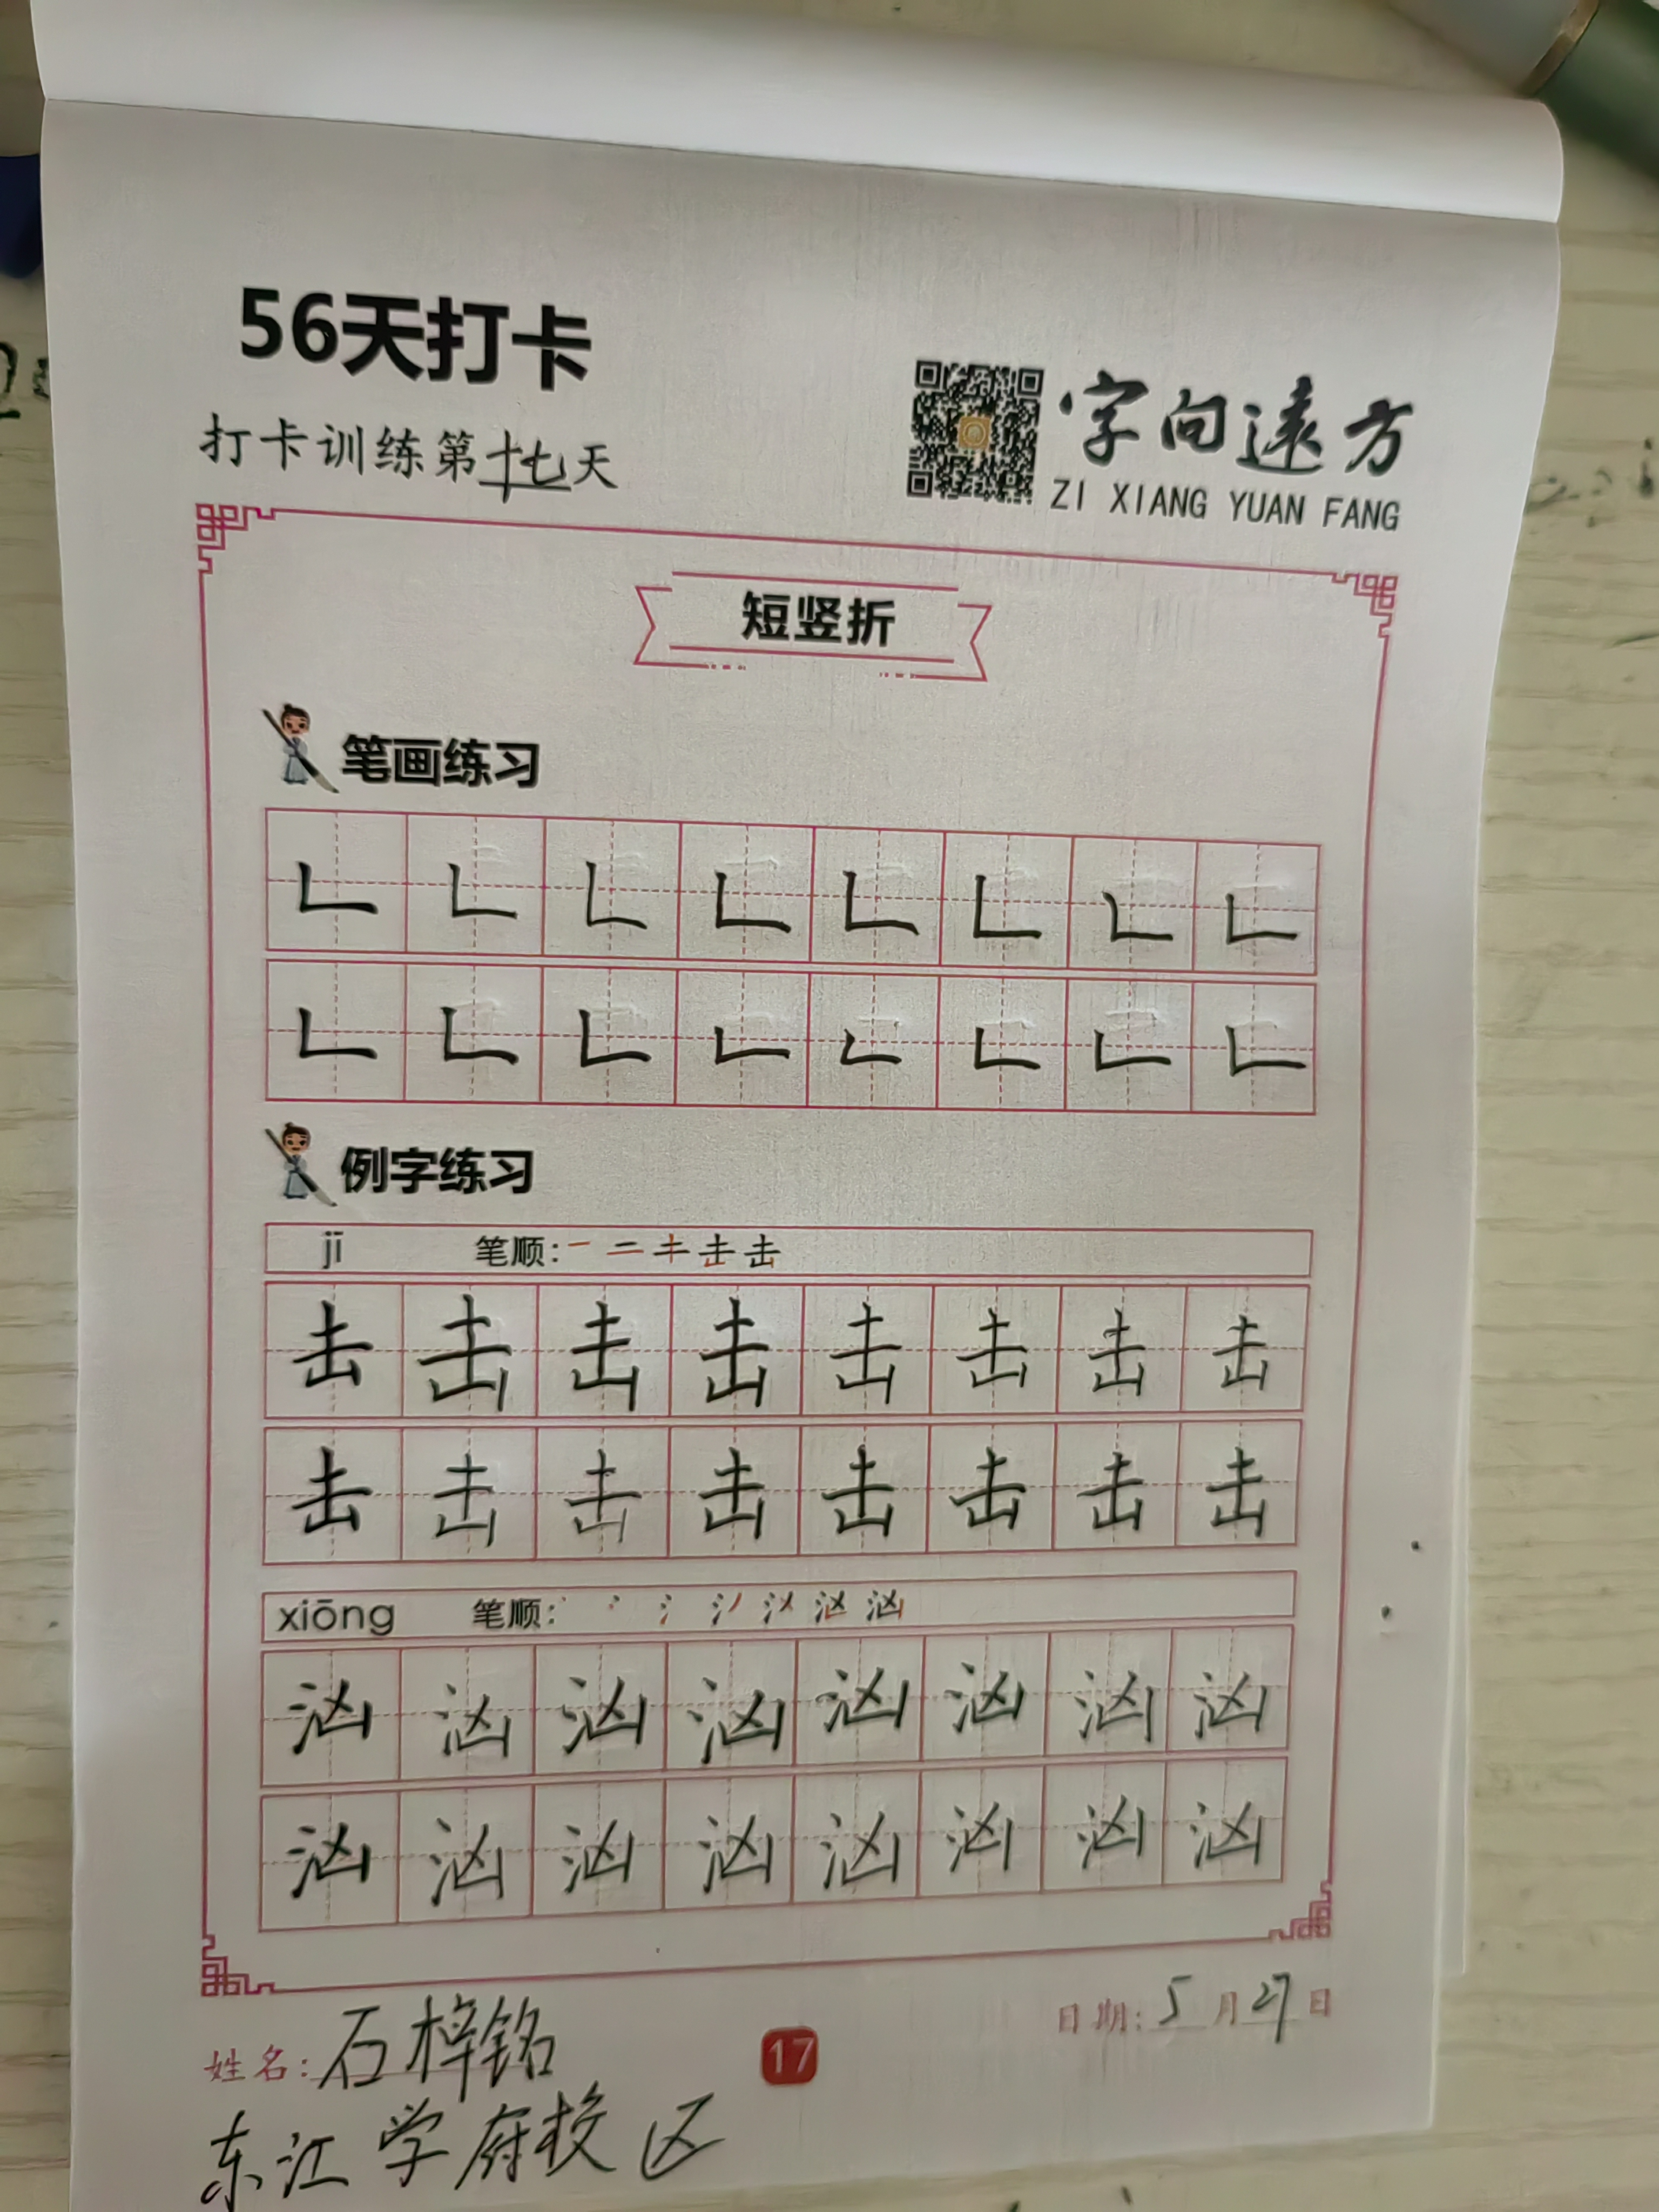 56天打卡
打卡训练第十七天
字向遠方
ZI XIANG YUAN FANG
短竖折
笔画练习
𠃊 𠃊 𠃊 𠃊 𠃊 𠃊 𠃊 𠃊
𠃊 𠃊 𠃊 𠃊 𠃊 𠃊 𠃊 𠃊
例字练习
jī 笔顺:
击 击 击 击 击 击 击 击
击 击 击 击 击 击 击 击
xiōng 笔顺:
汹 汹 汹 汹 汹 汹 汹 汹
汹 汹 汹 汹 汹 汹 汹 汹
姓名:石梓铭
17
日期:5月27日
东江学府校区